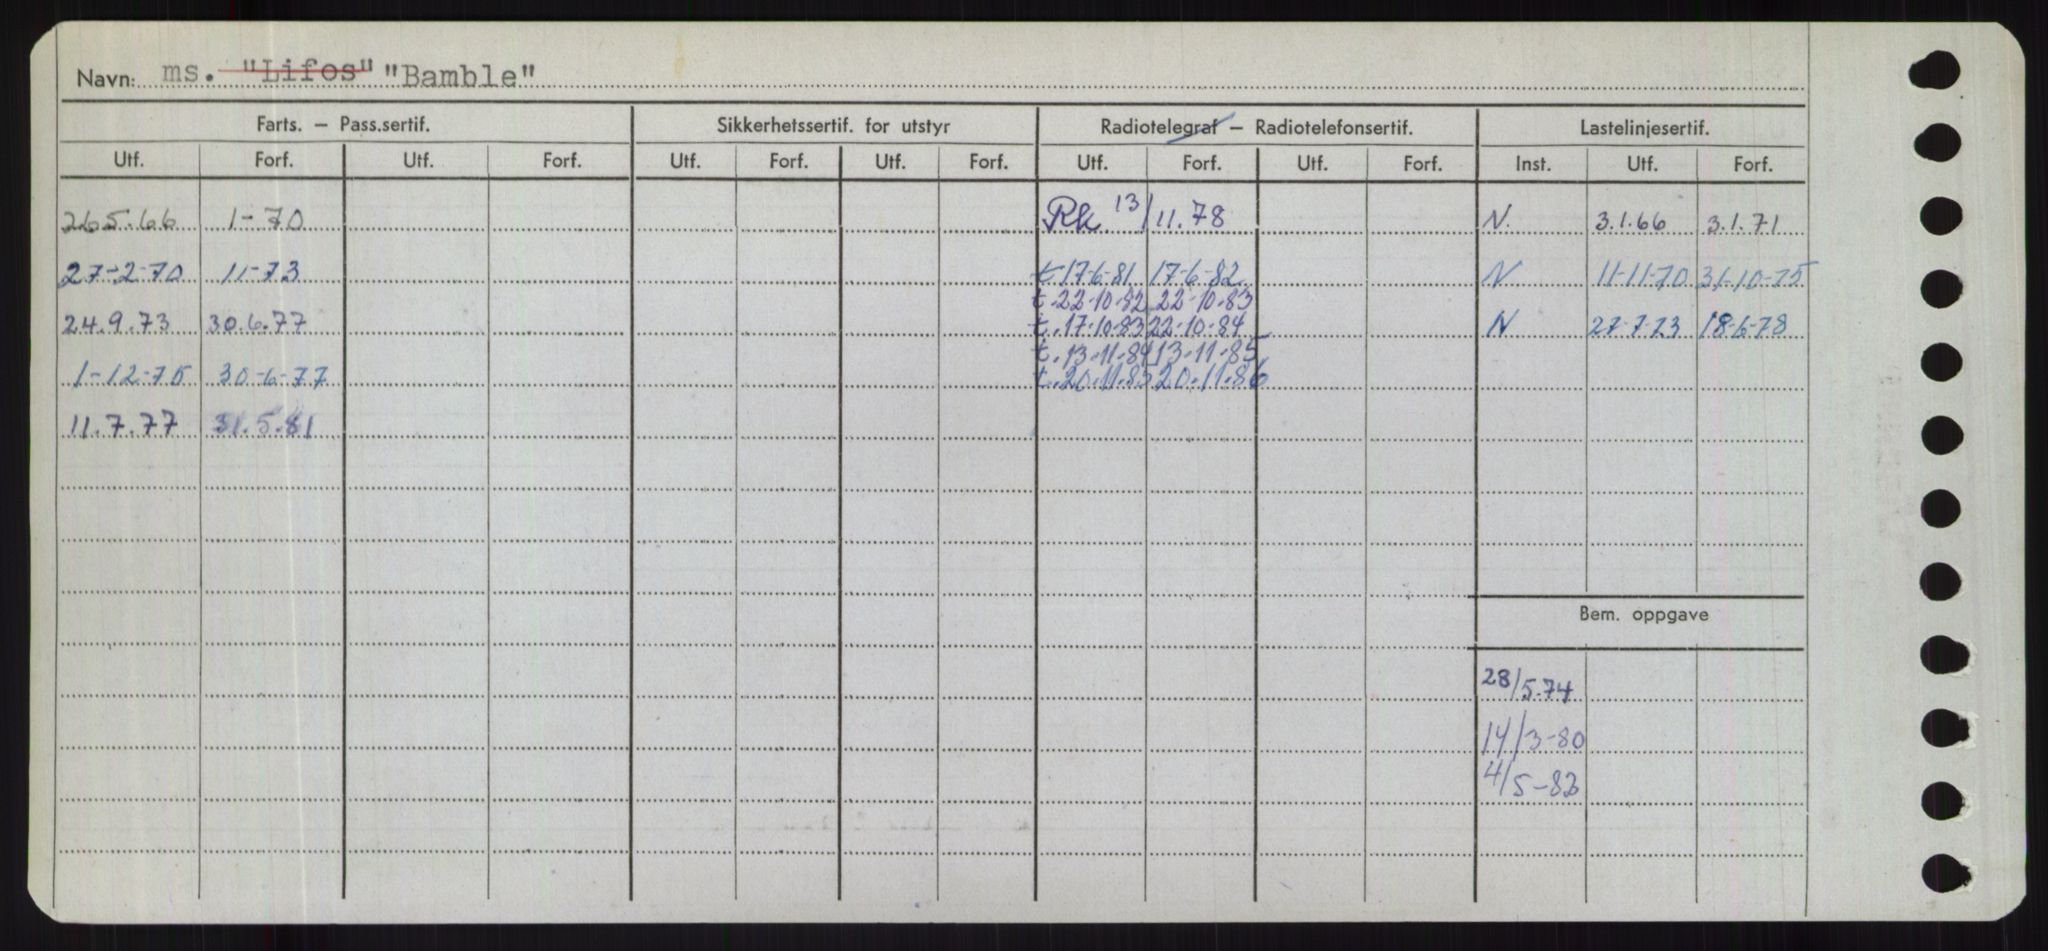 Navn: ms. "Lifos" "Bamble"
Farts. – Pass.sertif. Sikkerhetssertif. for utstyr Radiotelegraf – Radiotelefonsertif. Lastelinjesertif.
Utf. Forf. Utf. Forf. Utf. Forf. Utf. Forf. Utf. Forf. Utf. Forf. Inst. Utf. Forf.
265.66 1-70 Rk 13/11.78 N. 3.1.66 3.1.71
27-2-70 11-73 t.17-6-81 17-6-82 N 11-11-70 31-10-75
t.22-10-82 22-10-83
24.9.73 30.6.77 t.17-10-83 22-10-84 N 27-7-73 18-6-78
t.13-11-84 13-11-85
1-12-75 30-6-77 t.20.11.85 20.11.86
11.7.77 31.5.81
Bem. oppgave
28/5.74
14/3-80
4/5-82